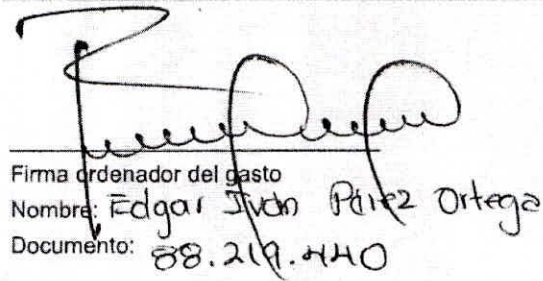 Firma ordenador del gasto
Nombre: Edgar Iván Páez Ortega
Documento: 88.219.440